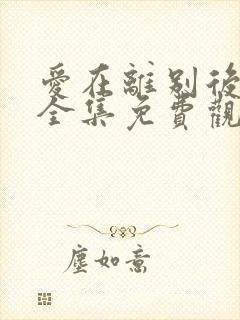 愛在離別後
全集免費觀
塵如意